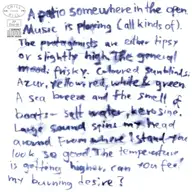 A patio somewhere in the open
Music is playing (all kinds of).
The protagonists are either tipsy
or slightly high. The general
mood: frisky. Coloured sunblinds.
Azur, yellow, red, white & green
A sea breeze and the smell of
boats – salt water, kerosine.
Large sound spins my head
around. From where I stand you
look so good. The temperature
is getting higher, can you feel
my burning desire?